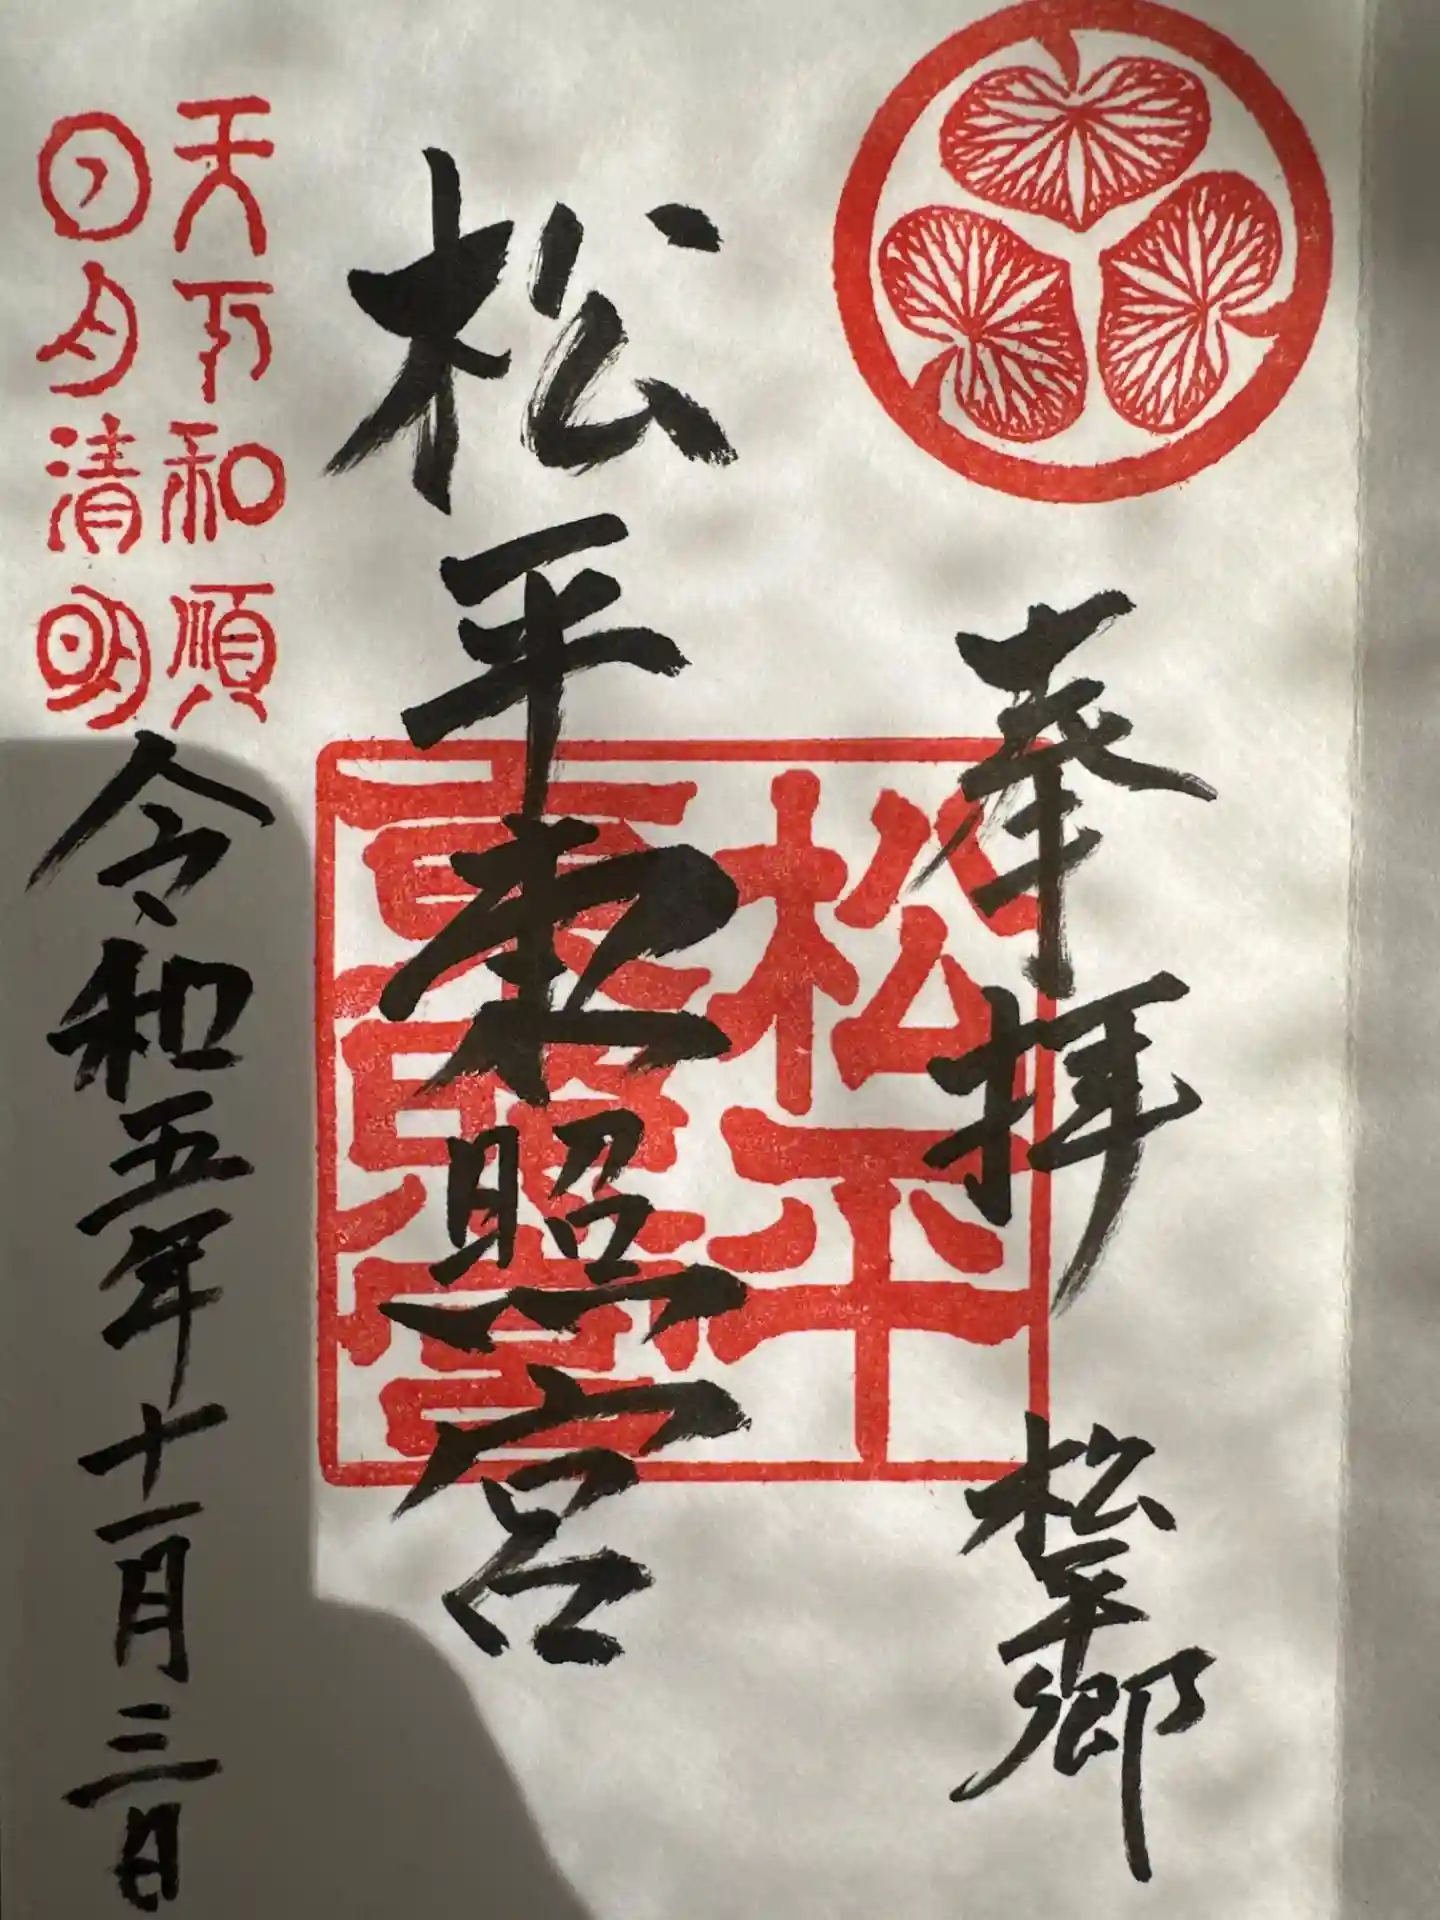 奉拝 松平郷
松平
東照宮
松平東照宮
天下和順
日月清明
令和五年十一月三日